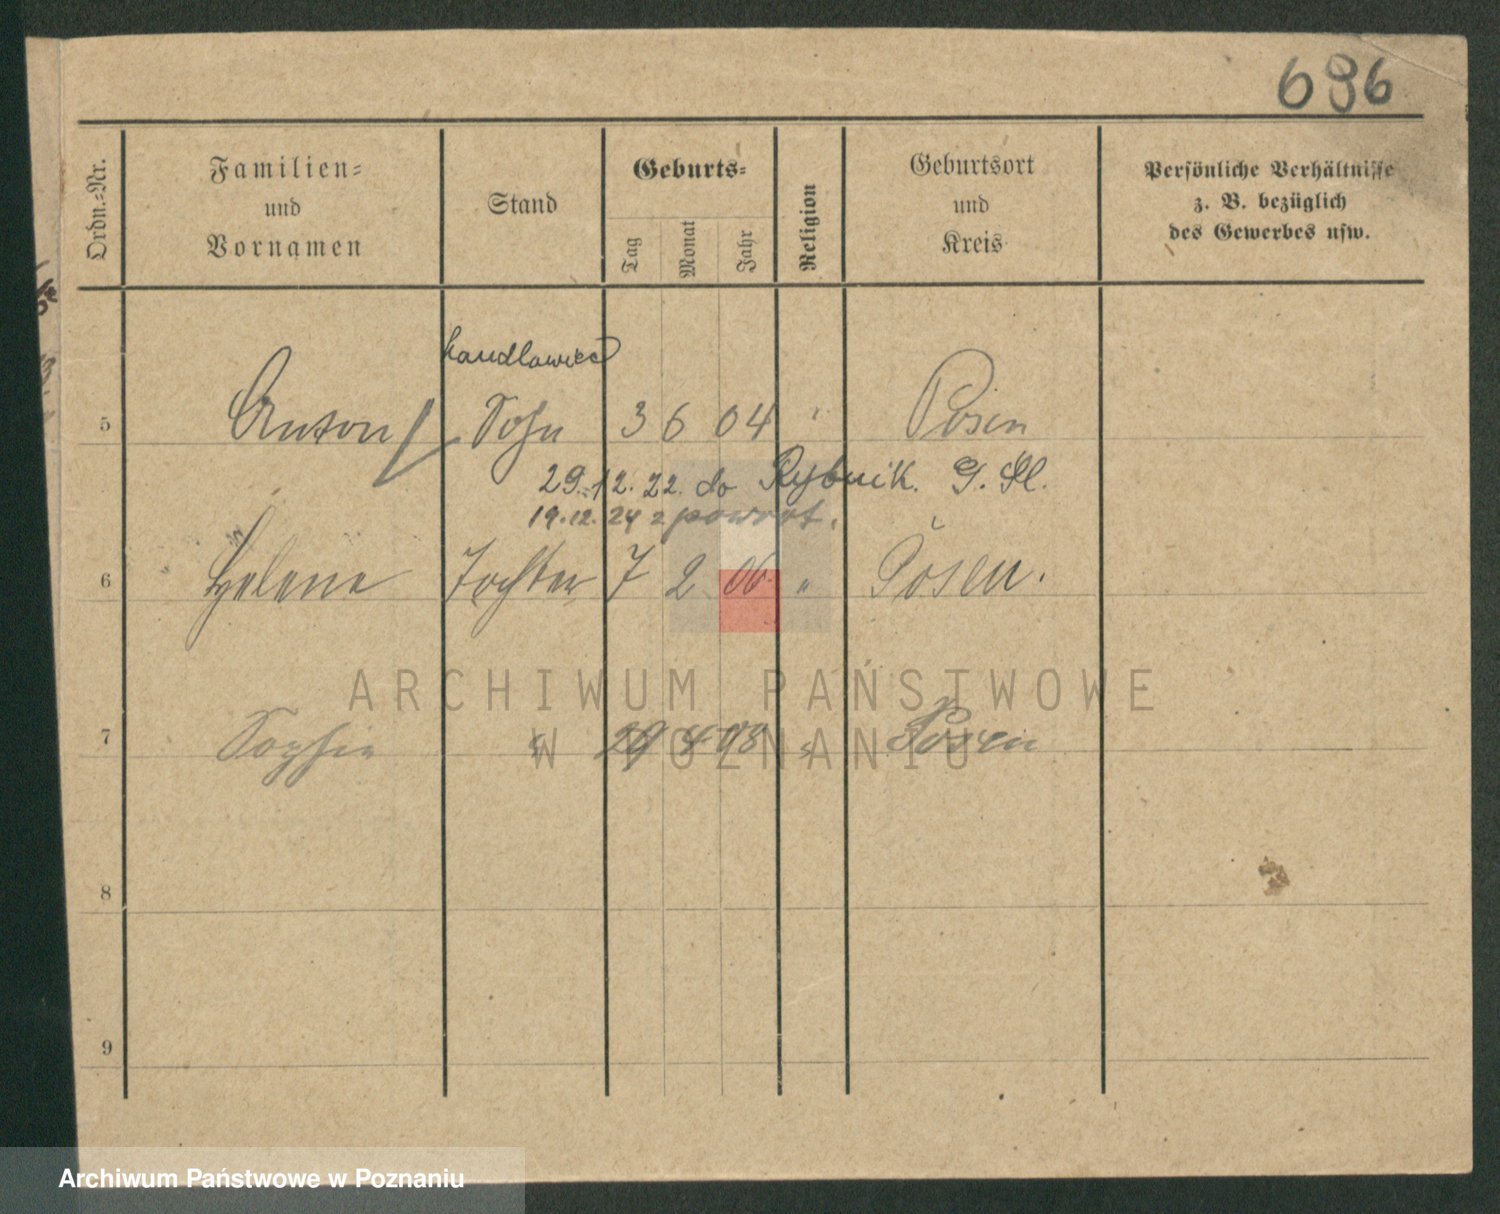 696
Ordn.-Nr.
Familien-
und
Vornamen
Stand
Geburts-
Tag
Monat
Jahr
Religion
Geburtsort
und
Kreis
Persönliche Verhältnisse
z. B. bezüglich
des Gewerbes usw.
handlowiec
5 Anton Sohn 3 6 04 " Posen
29.12.22. do Rybnik. G. Śl.
19.12.24 z powrot.
6 Helene Tochter 7 2 06 " Posen.
7 Sophie " 29 4 08 " Posen
8
9
ARCHIWUM PAŃSTWOWE
W POZNANIU
Archiwum Państwowe w Poznaniu